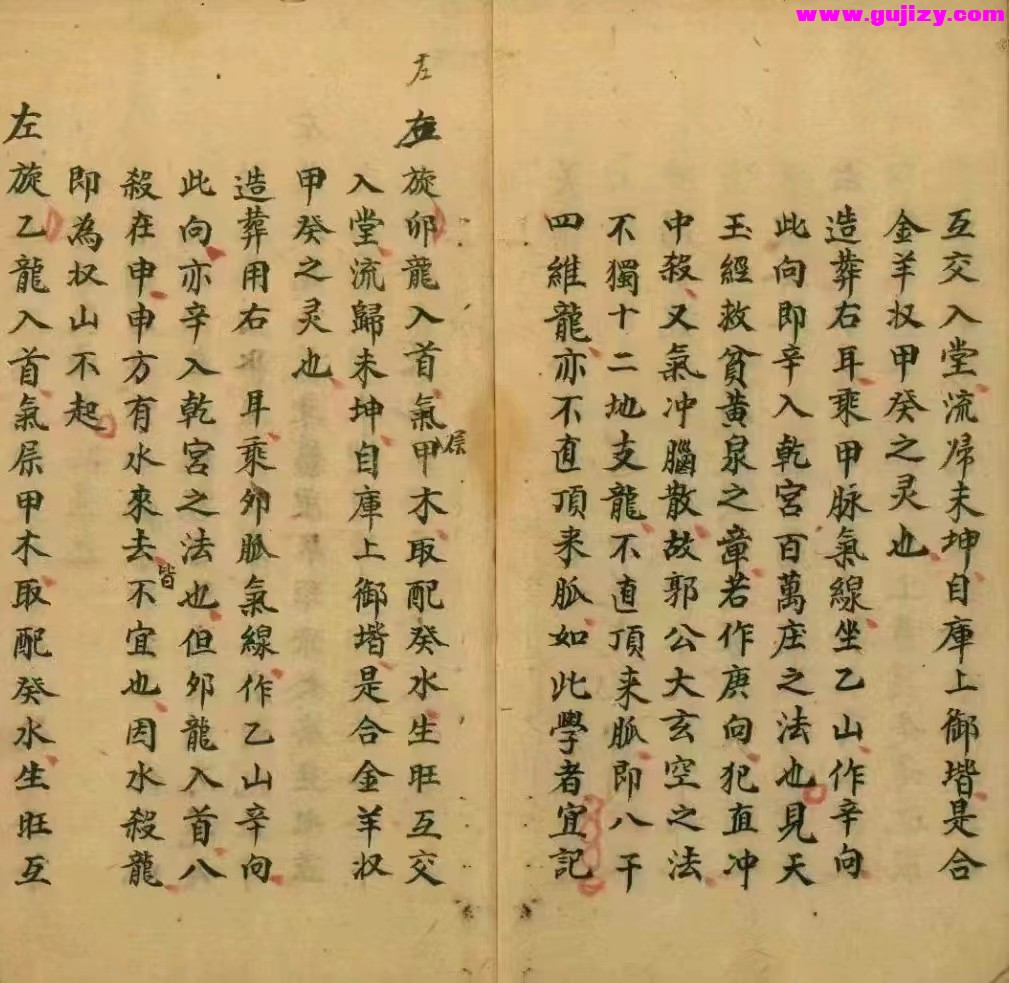 www.gujizy.com
互交入堂流帰未坤自庫上御堦是合
金羊収甲癸之灵也
造葬右耳乘甲脉氣線坐乙山作辛向
此向即辛入乾宮百萬庄之法也見天
玉經救貧黃泉之章若作庚向犯直冲
中殺又氣冲腦散故郭公大玄空之法
不獨十二地支龍不直頂来脈即八干
四維龍亦不直頂来脈如此學者宜記
左
旋卯龍入首氣甲木取配癸水生旺互交
屬
入堂流歸未坤自庫上御堦是合金羊収
甲癸之灵也
造葬用右耳乘卯脈氣線作乙山辛向
此向亦辛入乾宮之法也但卯龍入首八
殺在申申方有水來去不宜也因水殺龍
皆
即為収山不起
左旋乙龍入首氣屬甲木取配癸水生旺互